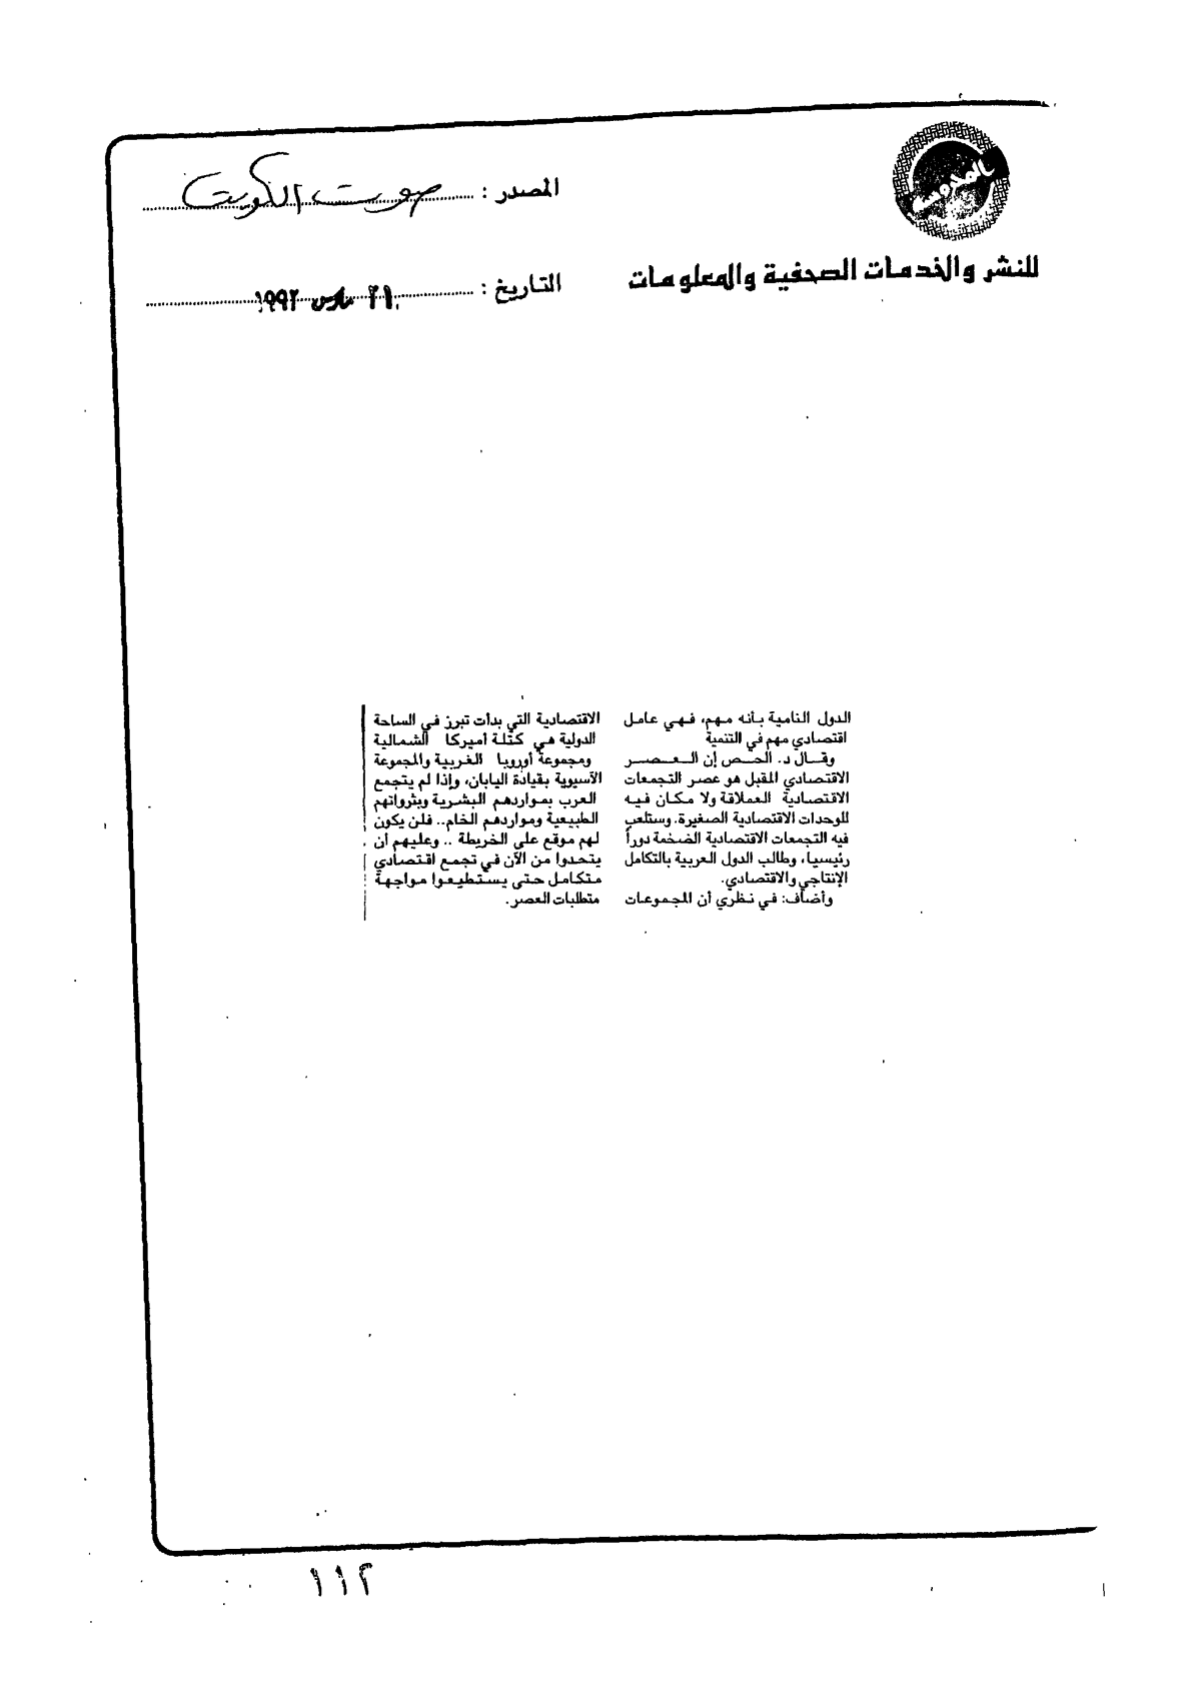 المصدر : صوت الكويت
للنشر والخدمات الصحفية والمعلومات
التاريخ : ٢١ مارس ١٩٩٢
الدول النامية بأنه مهم، فهي عامل
اقتصادي مهم في التنمية
وقال د. الحص إن العصر
الاقتصادي المقبل هو عصر التجمعات
الاقتصادية العملاقة ولا مكان فيه
للوحدات الاقتصادية الصغيرة. وستلعب
فيه التجمعات الاقتصادية الضخمة دوراً
رئيسيا، وطالب الدول العربية بالتكامل
الإنتاجي والاقتصادي.
وأضاف: في نظري أن المجموعات
الاقتصادية التي بدأت تبرز في الساحة
الدولية هي كتلة أميركا الشمالية
ومجموعة أوروبا الغربية والمجموعة
الآسيوية بقيادة اليابان، وإذا لم يتجمع
العرب بمواردهم البشرية وبثرواتهم
الطبيعية ومواردهم الخام.. فلن يكون
لهم موقع على الخريطة .. وعليهم أن
يتحدوا من الآن في تجمع اقتصادي
متكامل حتى يستطيعوا مواجهة
متطلبات العصر.
١١٢